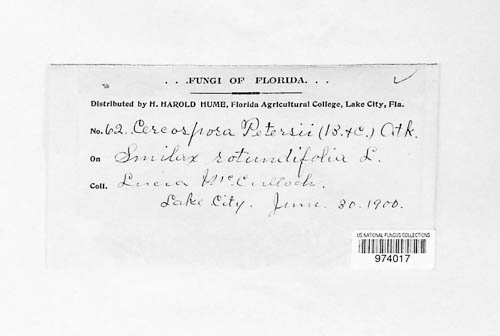 . . .FUNGI OF FLORIDA. . .
Distributed by H. HAROLD HUME, Florida Agricultural College, Lake City, Fla.
No. 62. Cercospora Petersii (B. & C.) Atk.
On Smilax rotundifolia L.
Coll. Lucia McCulloch.
Lake City. June. 30. 1900.
US NATIONAL FUNGUS COLLECTIONS
974017